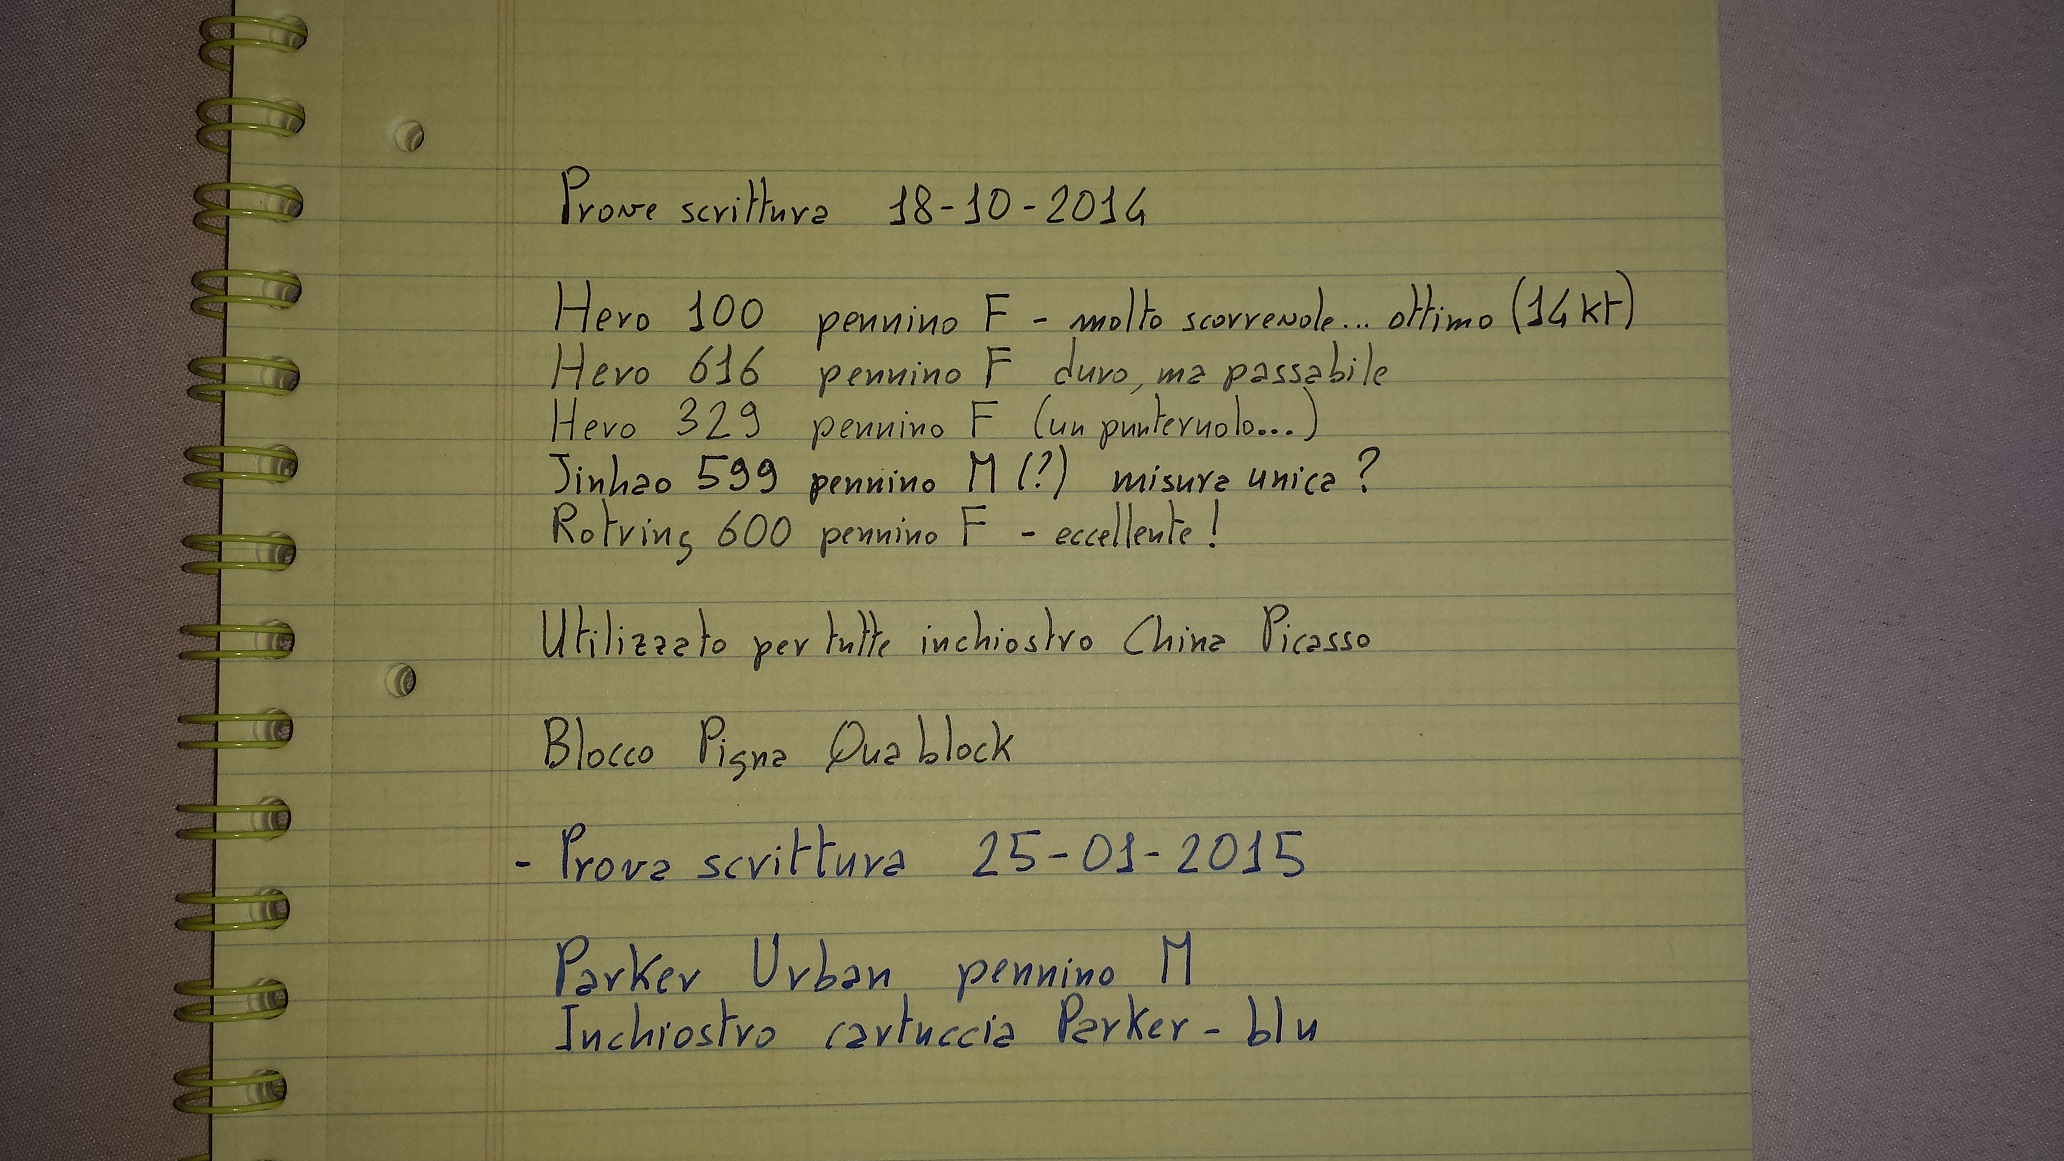 Prove scrittura 18-10-2014
Hero 100 pennino F - molto scorrevole... ottimo (14kt)
Hero 616 pennino F duro, ma passabile
Hero 329 pennino F (un punteruolo...)
Jinhao 599 pennino M (?) misura unica?
Rotring 600 pennino F - eccellente!
Utilizzato per tutte inchiostro China Picasso
Blocco Pigna Quablock
- Prova scrittura 25-01-2015
Parker Urban pennino M
Inchiostro cartuccia Parker - blu